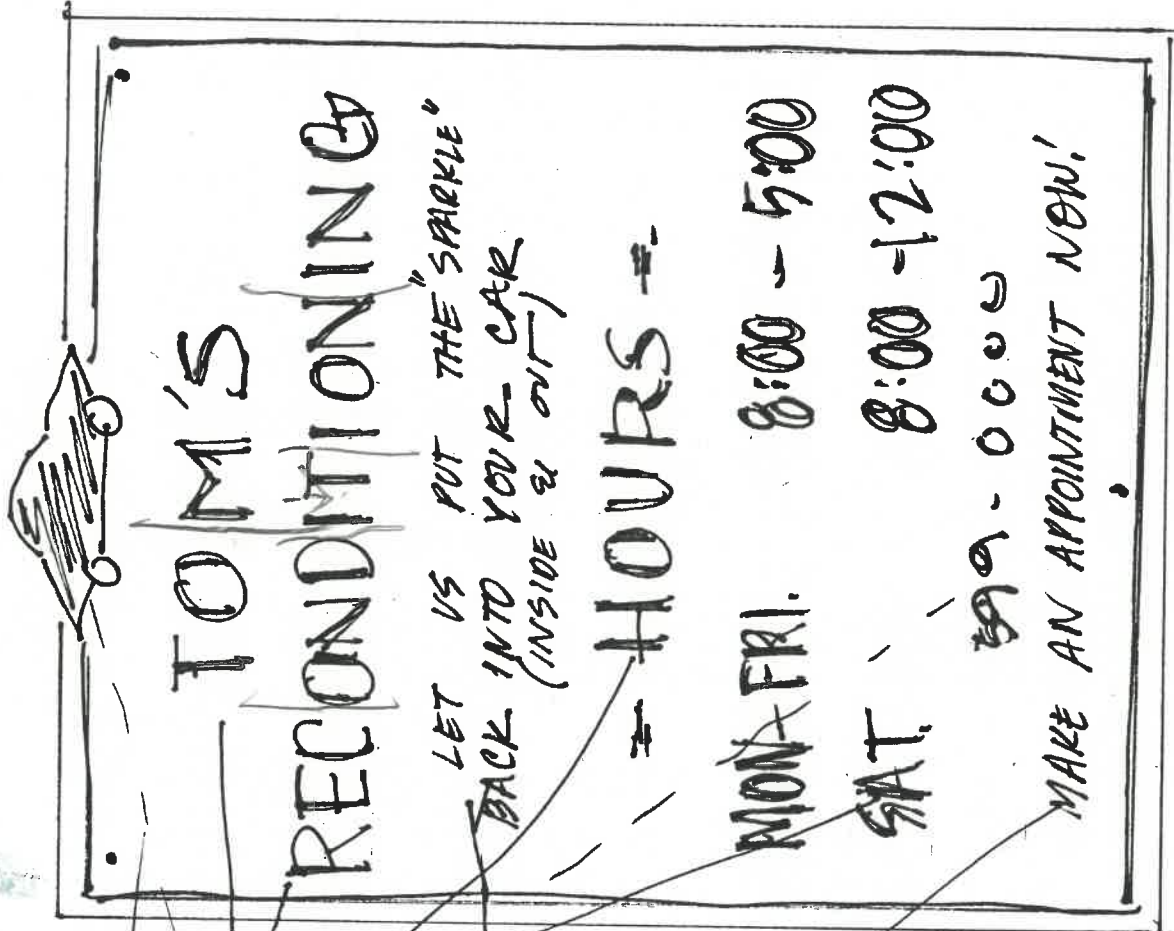 TOM'S
RECONDITIONING
LET US PUT THE "SPARKLE"
BACK INTO YOUR CAR
(INSIDE & OUT)
= HOURS =
MON-FRI. 8:00 - 5:00
SAT. 8:00 - 12:00
599-0000
MAKE AN APPOINTMENT NOW!